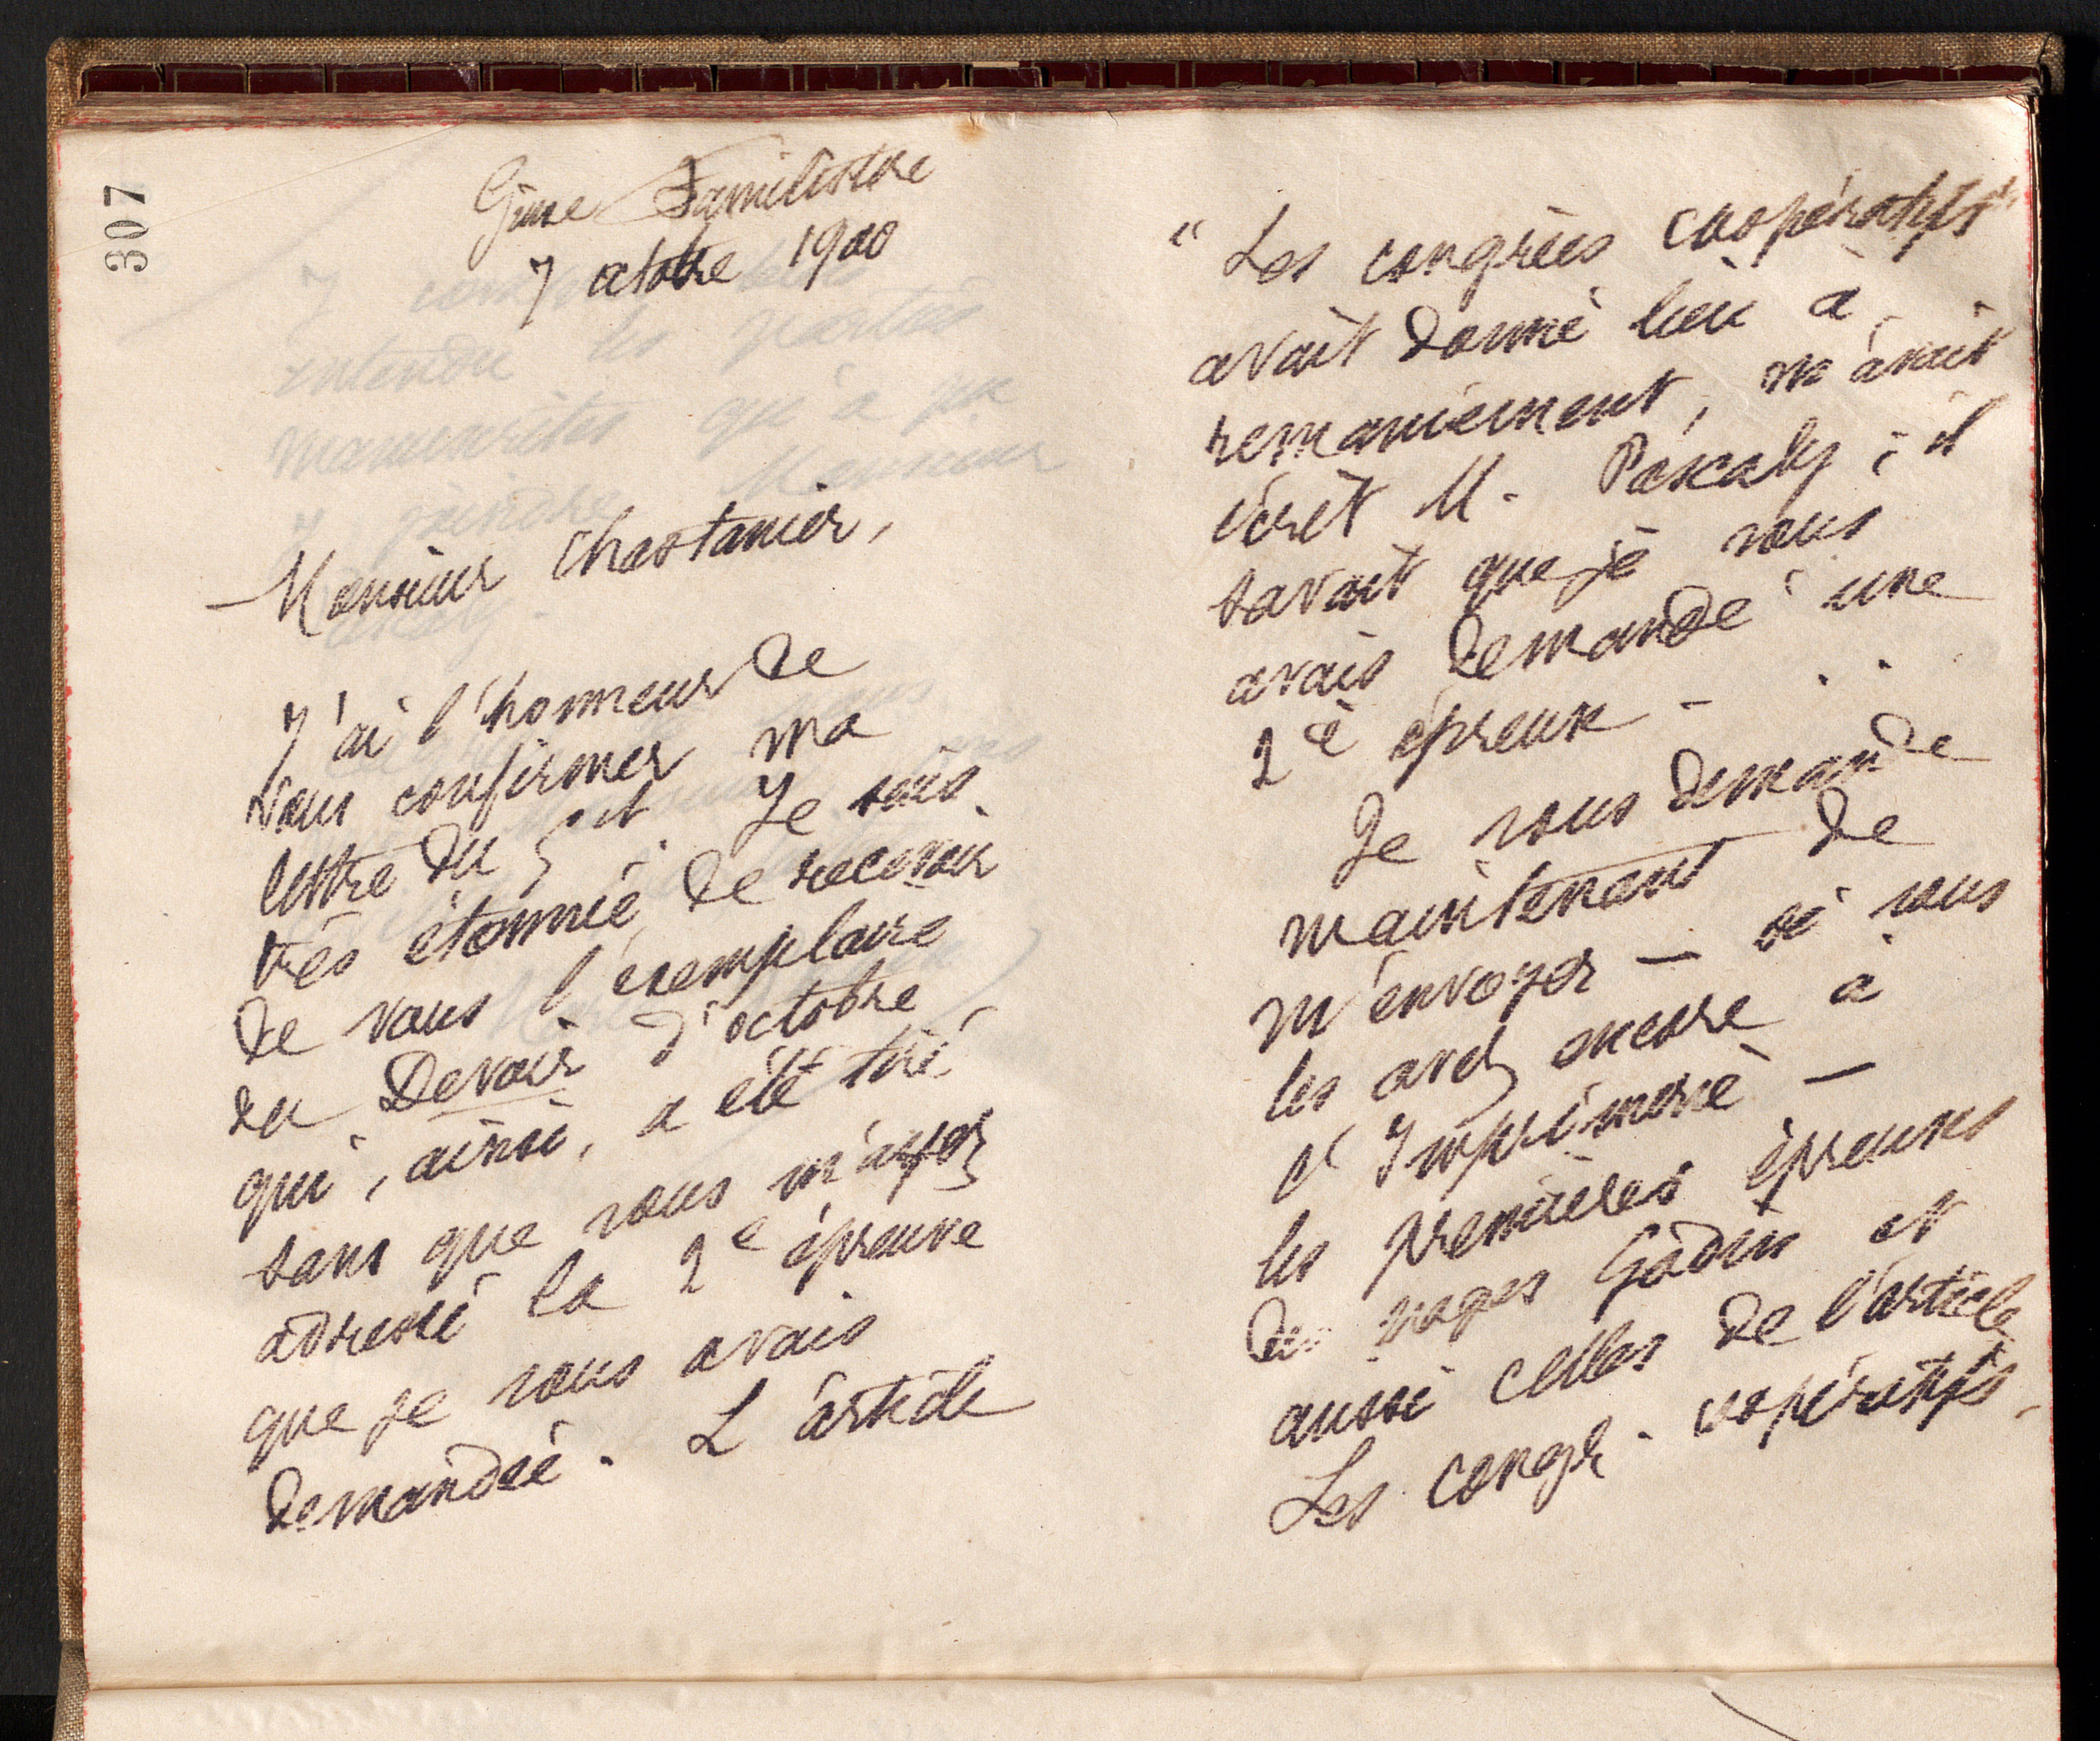 307
Guise Familistère
7 octobre 1900
Monsieur Chastanier,
J'ai l'honneur de
vous confirmer ma
lettre du 5 ct. Je suis
très étonnée de recevoir
de vous l'exemplaire
du Devoir d'octobre
qui, ainsi, a été tiré
sans que vous m'ayez
adressé la 2e épreuve
que je vous avais
demandée. L'article
"Les congrès coopératifs"
avait donné lieu à
remaniement, m'avait
écrit M. Pascaly ; il
savait que je vous
avais demandé une
2e épreuve - . .
Je vous demande
maintenant de
m'envoyer — si vous
les avez encore à
l'Imprimerie —
les premières épreuves
des pages Godin et
aussi celles de l'article
Les congr. coopératifs.